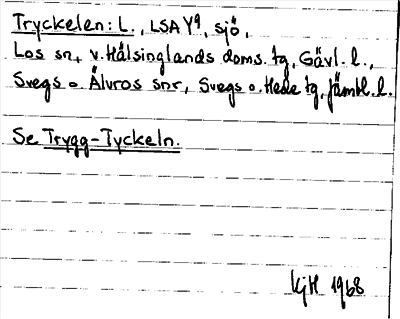 Tryckelen: L., LSA Y9, sjö,
Los sn, v. Hälsinglands doms. tg, Gävl. l.,
Svegs o. Älvros snr, Svegs o. Hede tg, Jämtl. l.
Se Trygg-Tyckeln.
KjH 1968